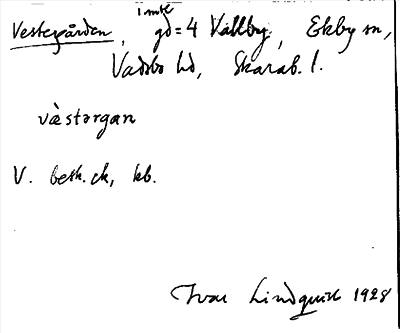 Vestergården, 1 mtl gd = 4 Källby, Ekby sn,
Vadsbo hd, Skarab. l.
væ̀stərgan
V. besk. ck, kb.
Ivar Lindquist 1928